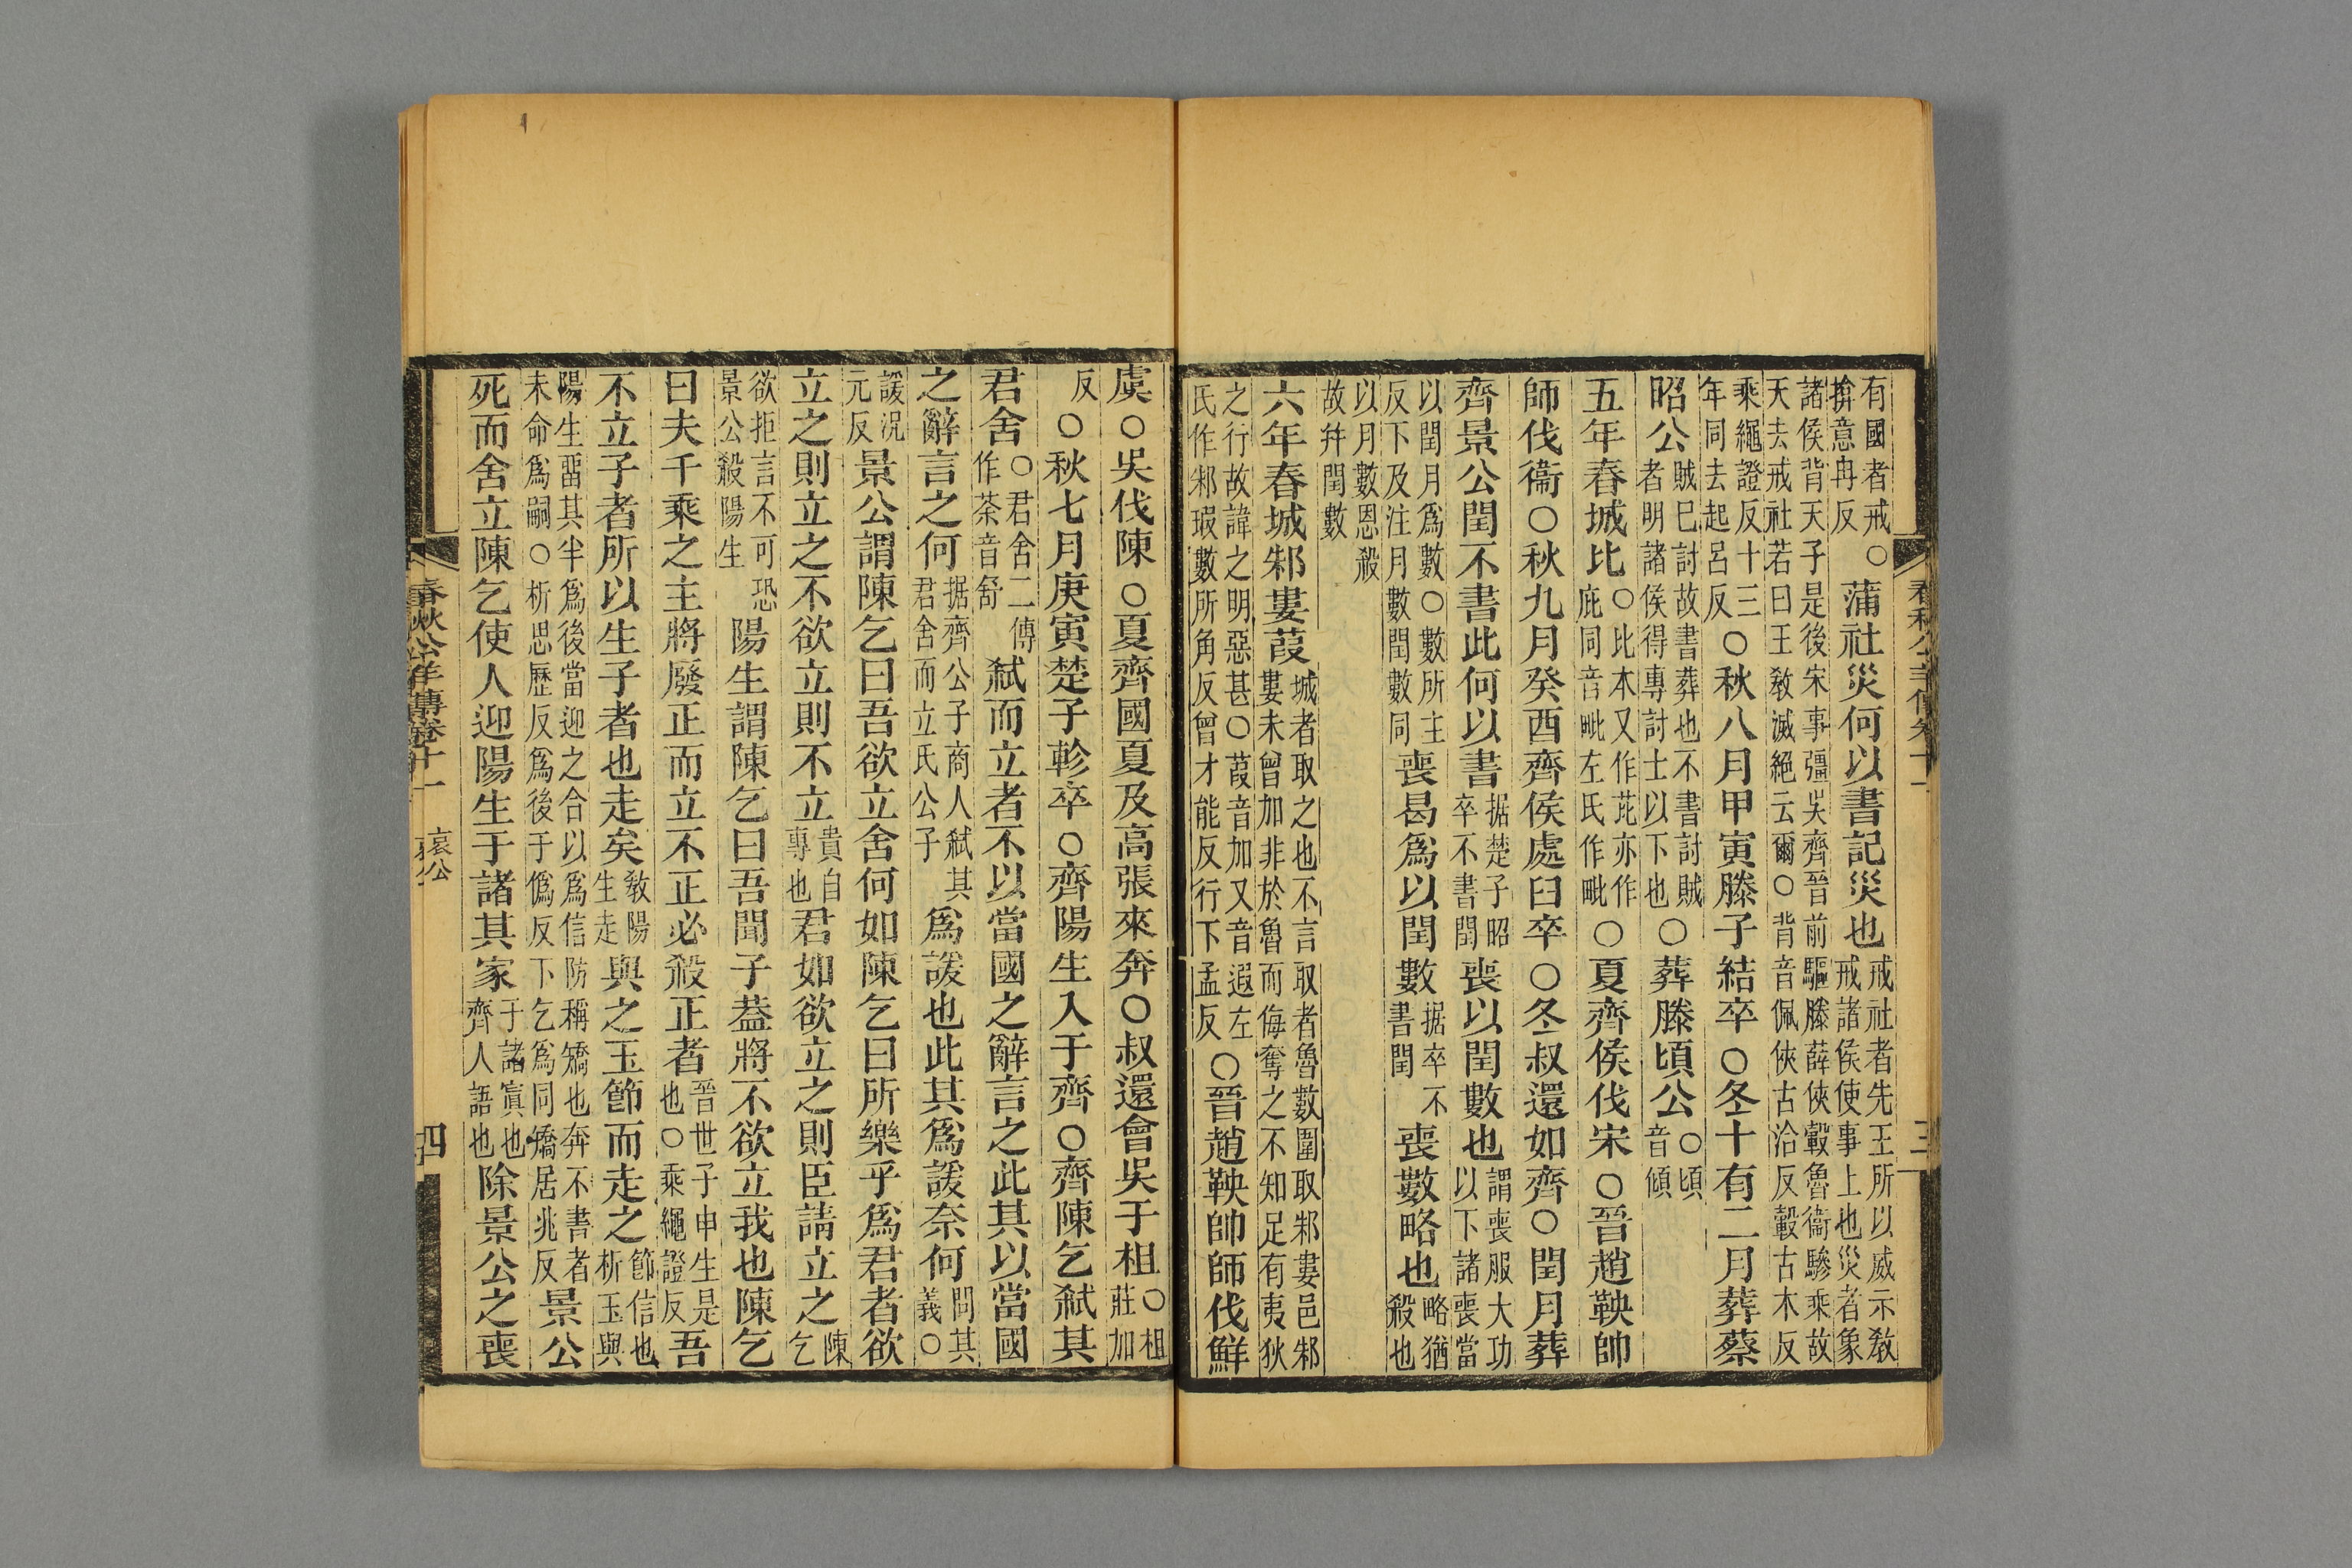 有國者戒○揜意冉反蒲社災何以書記災也戒社者先王所以威示敎戒諸侯使事上也災者象
諸侯背天子是後宋事彊吳齊晉前驅滕薛俠轂魯衞驂乘故天去戒社若曰王敎滅絕云爾○背音佩俠古洽反轂古木反
乘繩證反十三年同去起呂反○秋八月甲寅滕子結卒○冬十有二月葬蔡
昭公賊已討故書葬也不書討賊者明諸侯得專討士以下也○葬滕頃公○頃音傾
五年春城比○比本又作芘亦作庇同音毗左氏作毗○夏齊侯伐宋○晉趙鞅帥
師伐衞○秋九月癸酉齊侯處臼卒○冬叔還如齊○閏月葬
齊景公閏不書此何以書据楚子昭卒不書閏喪以閏數也謂喪服大功以下諸喪當
以閏月爲數○數所主反下及注月數閏數同喪曷爲以閏數据卒不書閏喪數略也略猶殺也
以月數恩殺故幷閏數
六年春城邾婁葭城者取之也不言取者魯數圍取邾婁邑邾婁未曾加非於魯而侮奪之不知足有夷狄
之行故諱之明惡甚○葭音加又音遐左氏作邾瑕數所角反曾才能反行下孟反○晉趙鞅帥師伐鮮
虞○吳伐陳○夏齊國夏及高張來奔○叔還會吳于柤○柤莊加
反○秋七月庚寅楚子軫卒○齊陽生入于齊○齊陳乞弑其
君舍○君舍二傳作荼音舒弑而立者不以當國之辭言之此其以當國
之辭言之何据齊公子商人弑其君舍而立氏公子爲諼也此其爲諼奈何問其義○
諼況元反景公謂陳乞曰吾欲立舍何如陳乞曰所樂乎爲君者欲
立之則立之不欲立則不立貴自專也君如欲立之則臣請立之陳乞
欲拒言不可恐景公殺陽生陽生謂陳乞曰吾聞子蓋將不欲立我也陳乞
曰夫千乘之主將廢正而立不正必殺正者晉世子申生是也○乘繩證反吾
不立子者所以生子者也走矣敎陽生走與之玉節而走之節信也析玉與
陽生畱其半爲後當迎之合以爲信防稱矯也奔不書者未命爲嗣○析思歷反爲後于僞反下乞爲同矯居兆反景公
死而舍立陳乞使人迎陽生于諸其家于諸寘也齊人語也除景公之喪
春秋公羊傳卷十一 哀公 四